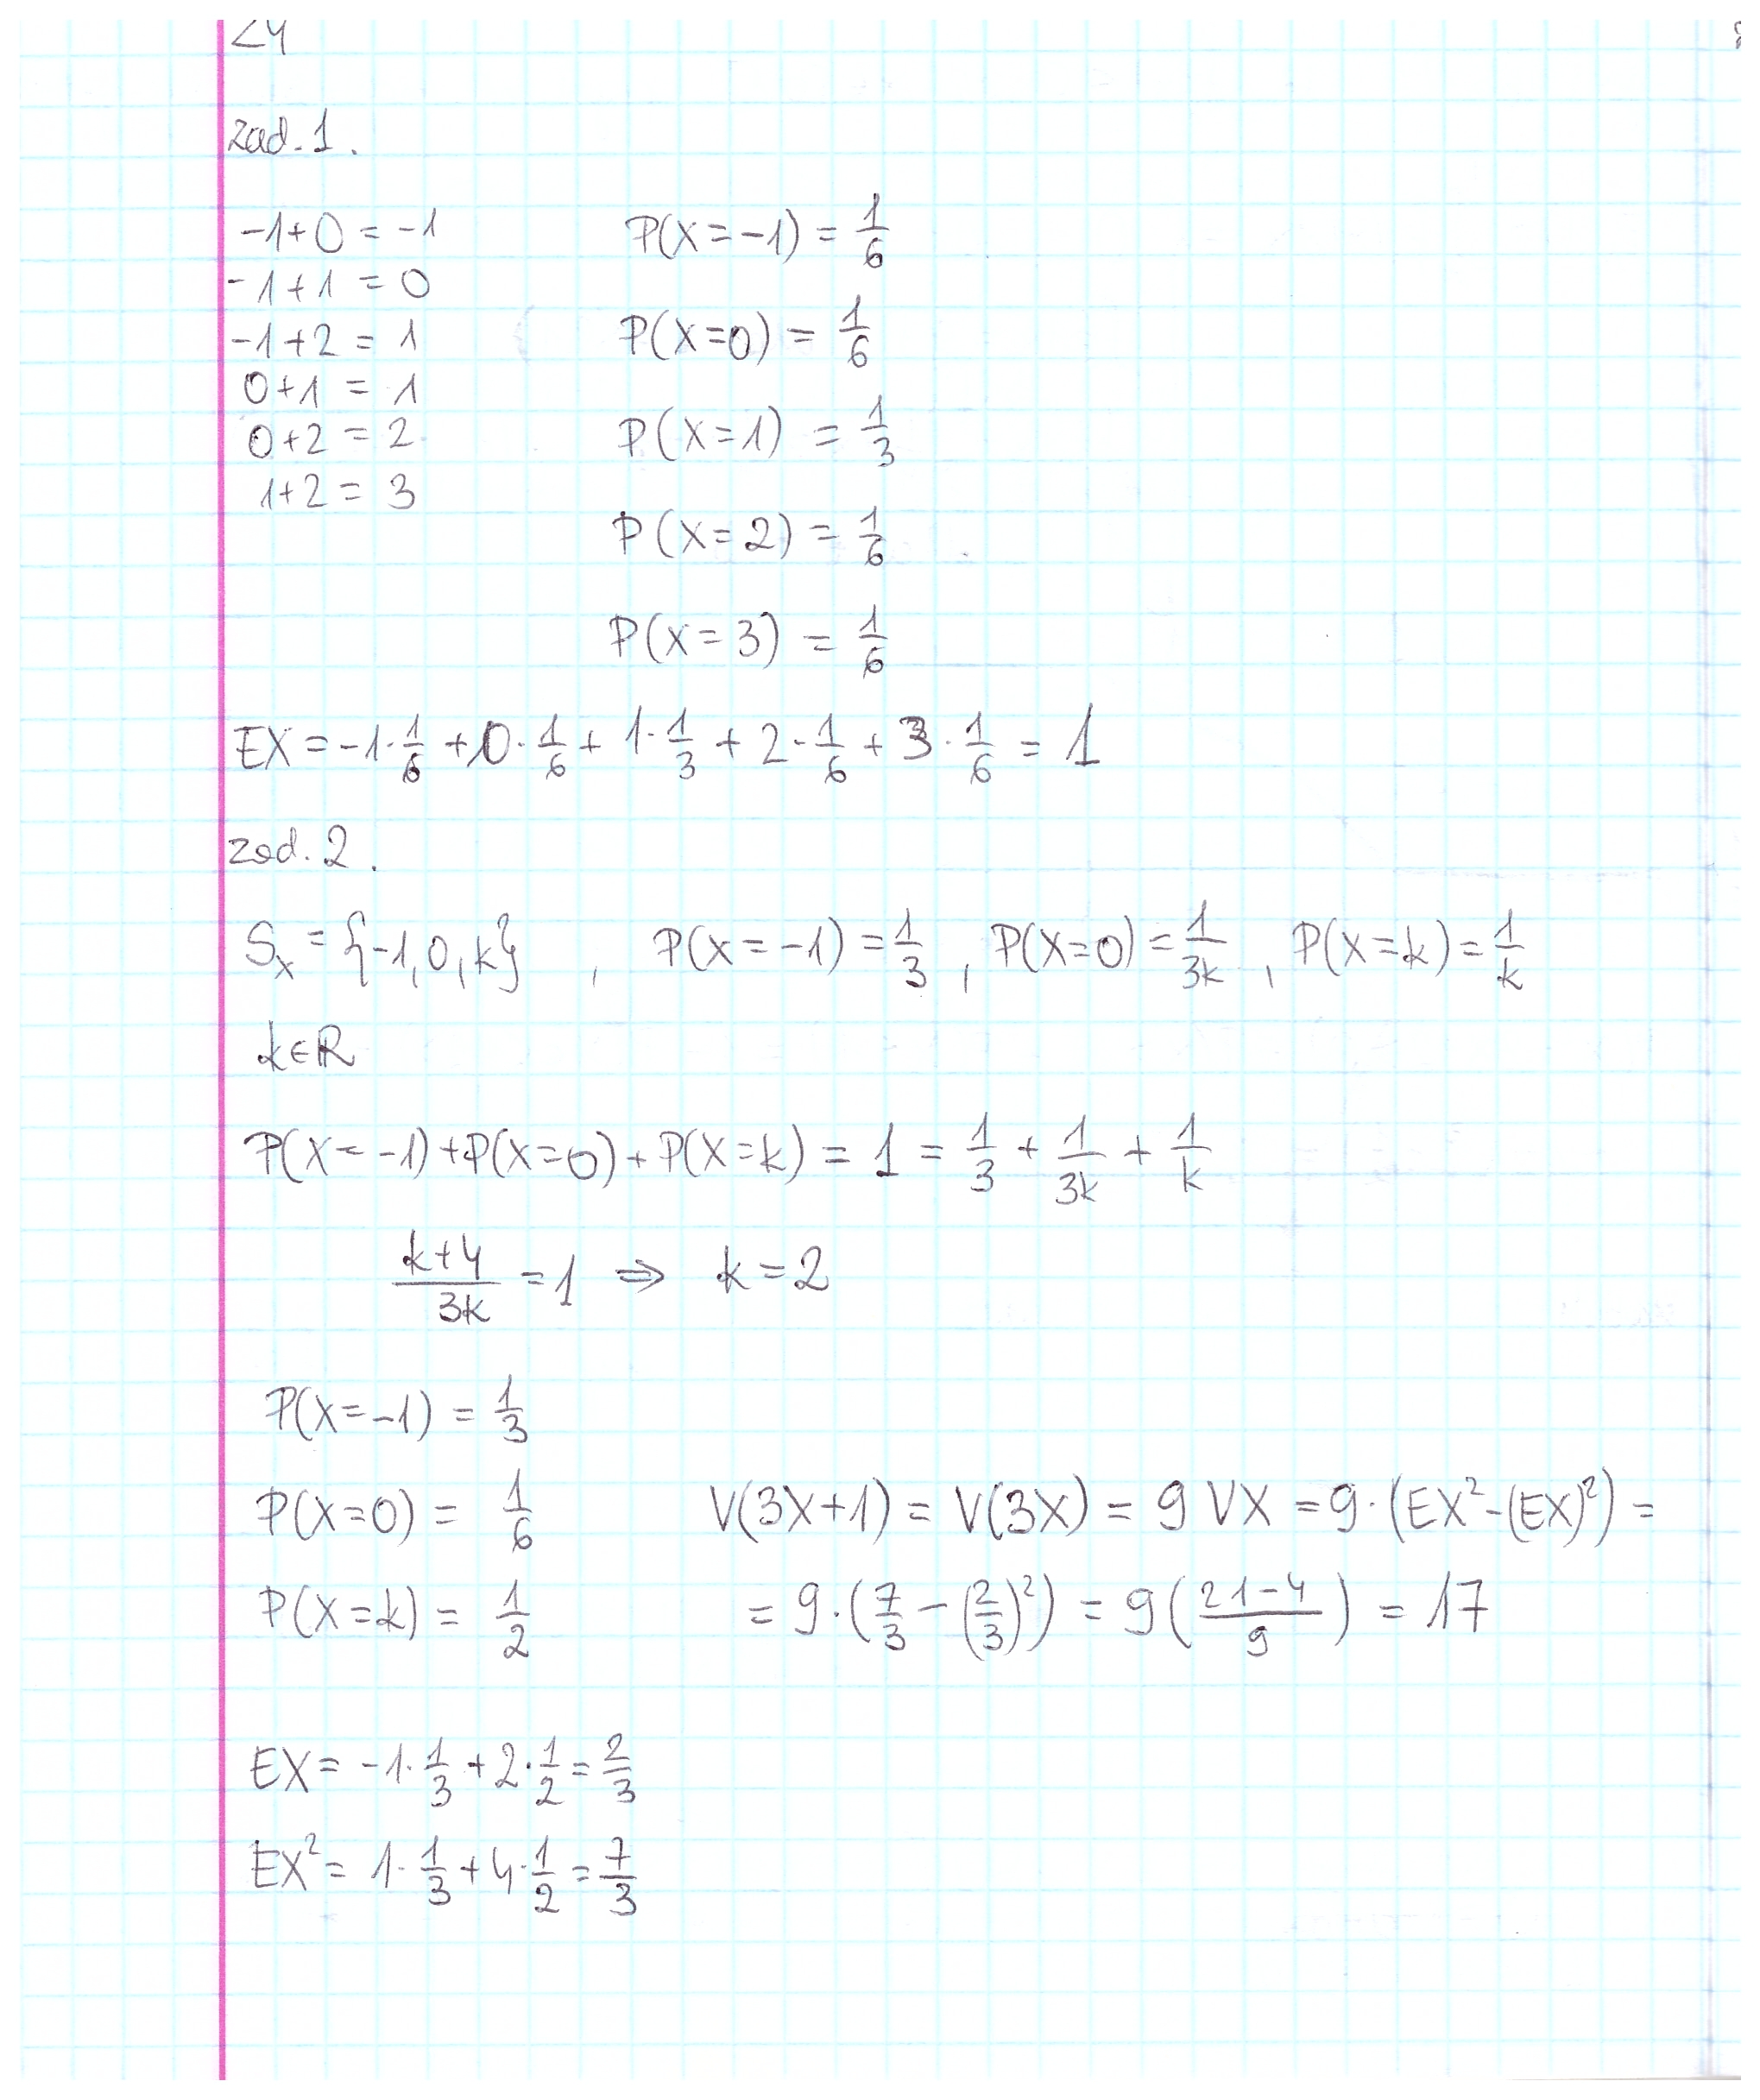 zad. 1.
-1+0 = -1    P(X=-1) = 1/6
-1+1 = 0
-1+2 = 1    P(X=0) = 1/6
0+1 = 1
0+2 = 2    P(X=1) = 1/3
1+2 = 3
P(X=2) = 1/6
P(X=3) = 1/6
EX = -1·1/6 + 0·1/6 + 1·1/3 + 2·1/6 + 3·1/6 = 1
zad. 2.
Sₓ = {-1, 0, k} , P(X=-1) = 1/3 , P(X=0) = 1/3k , P(X=k) = 1/k
k∈R
P(X=-1) + P(X=0) + P(X=k) = 1 = 1/3 + 1/3k + 1/k
(k+4)/3k = 1 ⇒ k=2
P(X=-1) = 1/3
P(X=0) = 1/6    V(3X+1) = V(3X) = 9 VX = 9·(EX²-(EX)²) =
P(X=k) = 1/2    = 9·(7/3 - (2/3)²) = 9((21-4)/9) = 17
EX = -1·1/3 + 2·1/2 = 2/3
EX² = 1·1/3 + 4·1/2 = 7/3